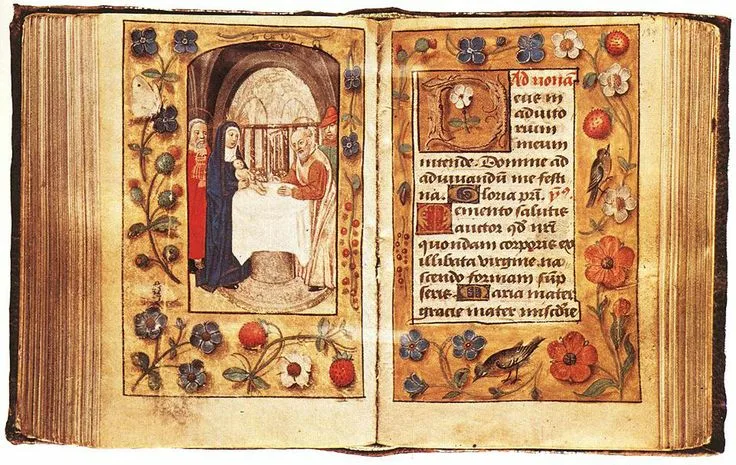 Ad nonā.
Deus in
adiuto
rium
meum
intende. Domine ad
adiuuandū me festi
na. Gloria pr̄i. ps̄
Memento salutis
auctor qđ nr̄i
quondam corporis ex
illibata virgine na
scendo formam sūp
seris. Maria mater
gracie mater mīcd̄ie